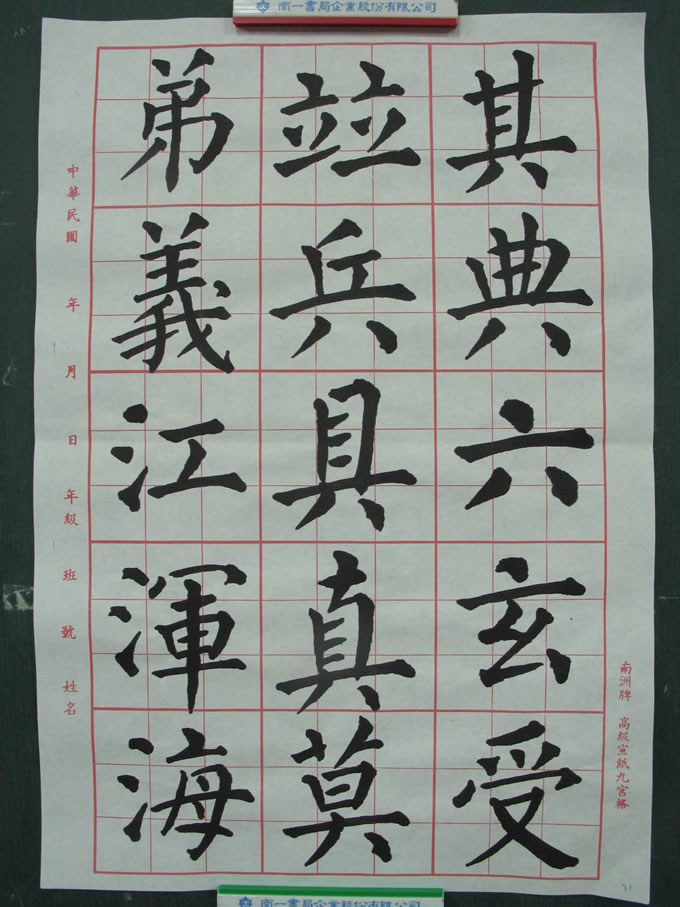 南一書局企業股份有限公司
其典六玄受
竝兵具真莫
弟義江渾海
中華民國 年 月 日 年級 班 號 姓名
南洲牌 高級宣紙九宮格
南一書局企業股份有限公司